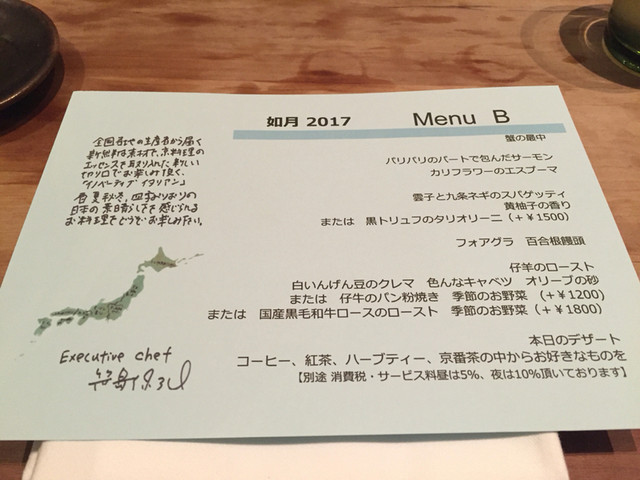 如月 2017 Menu B
蟹の最中
パリパリのパートで包んだサーモン
カリフラワーのエスプーマ
雲子と九条ネギのスパゲッティ
黄柚子の香り
または 黒トリュフのタリオリーニ（+￥1500）
フォアグラ 百合根饅頭
仔羊のロースト
白いんげん豆のクレマ 色んなキャベツ オリーブの砂
または 仔牛のパン粉焼き 季節のお野菜 （+￥1200）
または 国産黒毛和牛ロースのロースト 季節のお野菜（+￥1800）
本日のデザート
コーヒー、紅茶、ハーブティー、京番茶の中からお好きなものを
【別途 消費税・サービス料昼は5%、夜は10%頂いております】
全国各地の生産者から届く
新鮮な素材で、京料理の
エッセンスを取り入れた新しい
切り口でお楽しみ頂く、
「イノベーティブ イタリアン」
春夏秋冬、四季おりおりの
日本の素晴らしさを感じられる
お料理をどうぞお楽しみ下さい。
Executive chef